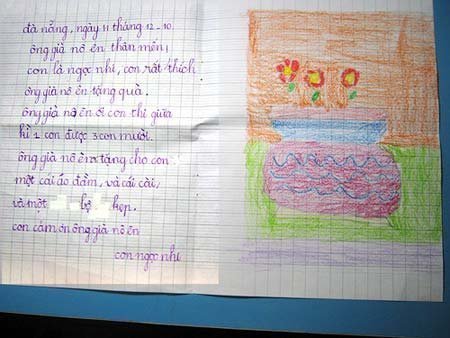 đà nẵng, ngày 11 tháng 12-10.
ông già nô en thân mến,
con là ngọc nhi, con rất thích
ông già nô en tặng quà.
ông già nô en ơi con thi giữa
kì 1 con được 3 con mười.
ông già nô en tặng cho con
một cái áo đầm, và cái cài,
và một bộ kẹp.
con cám ơn ông già nô en
con ngọc nhi